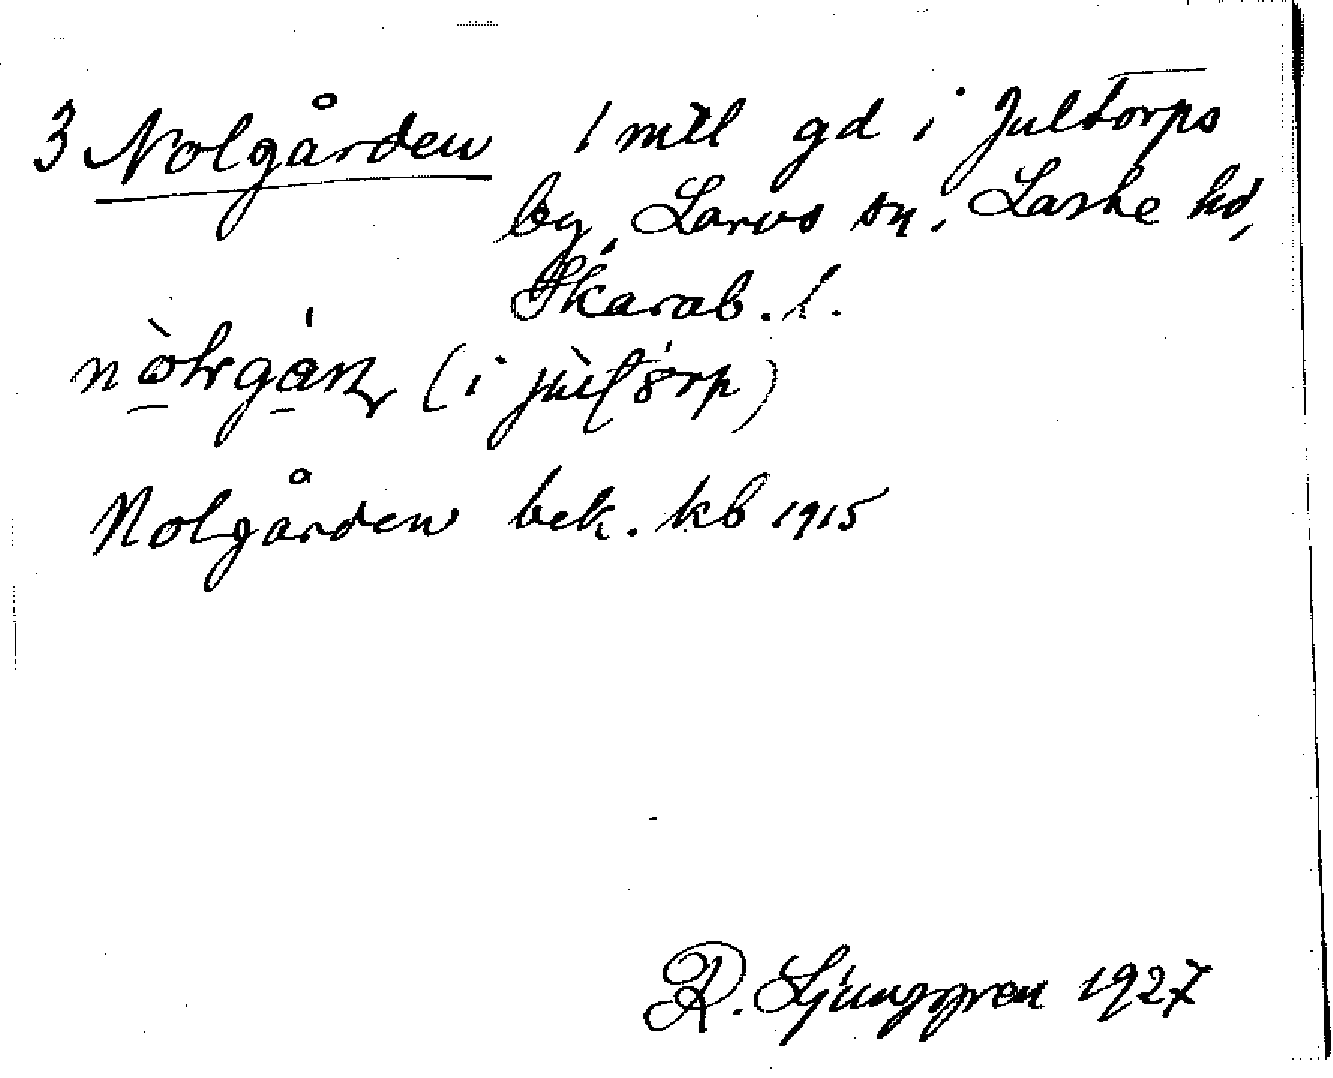 3 Nolgården 1 mtl gd i Jultorps
by, Larvs sn, Laske hd,
Skarab. l.
(i
Nolgården bek. kb 1915
R. Ljunggren 1927